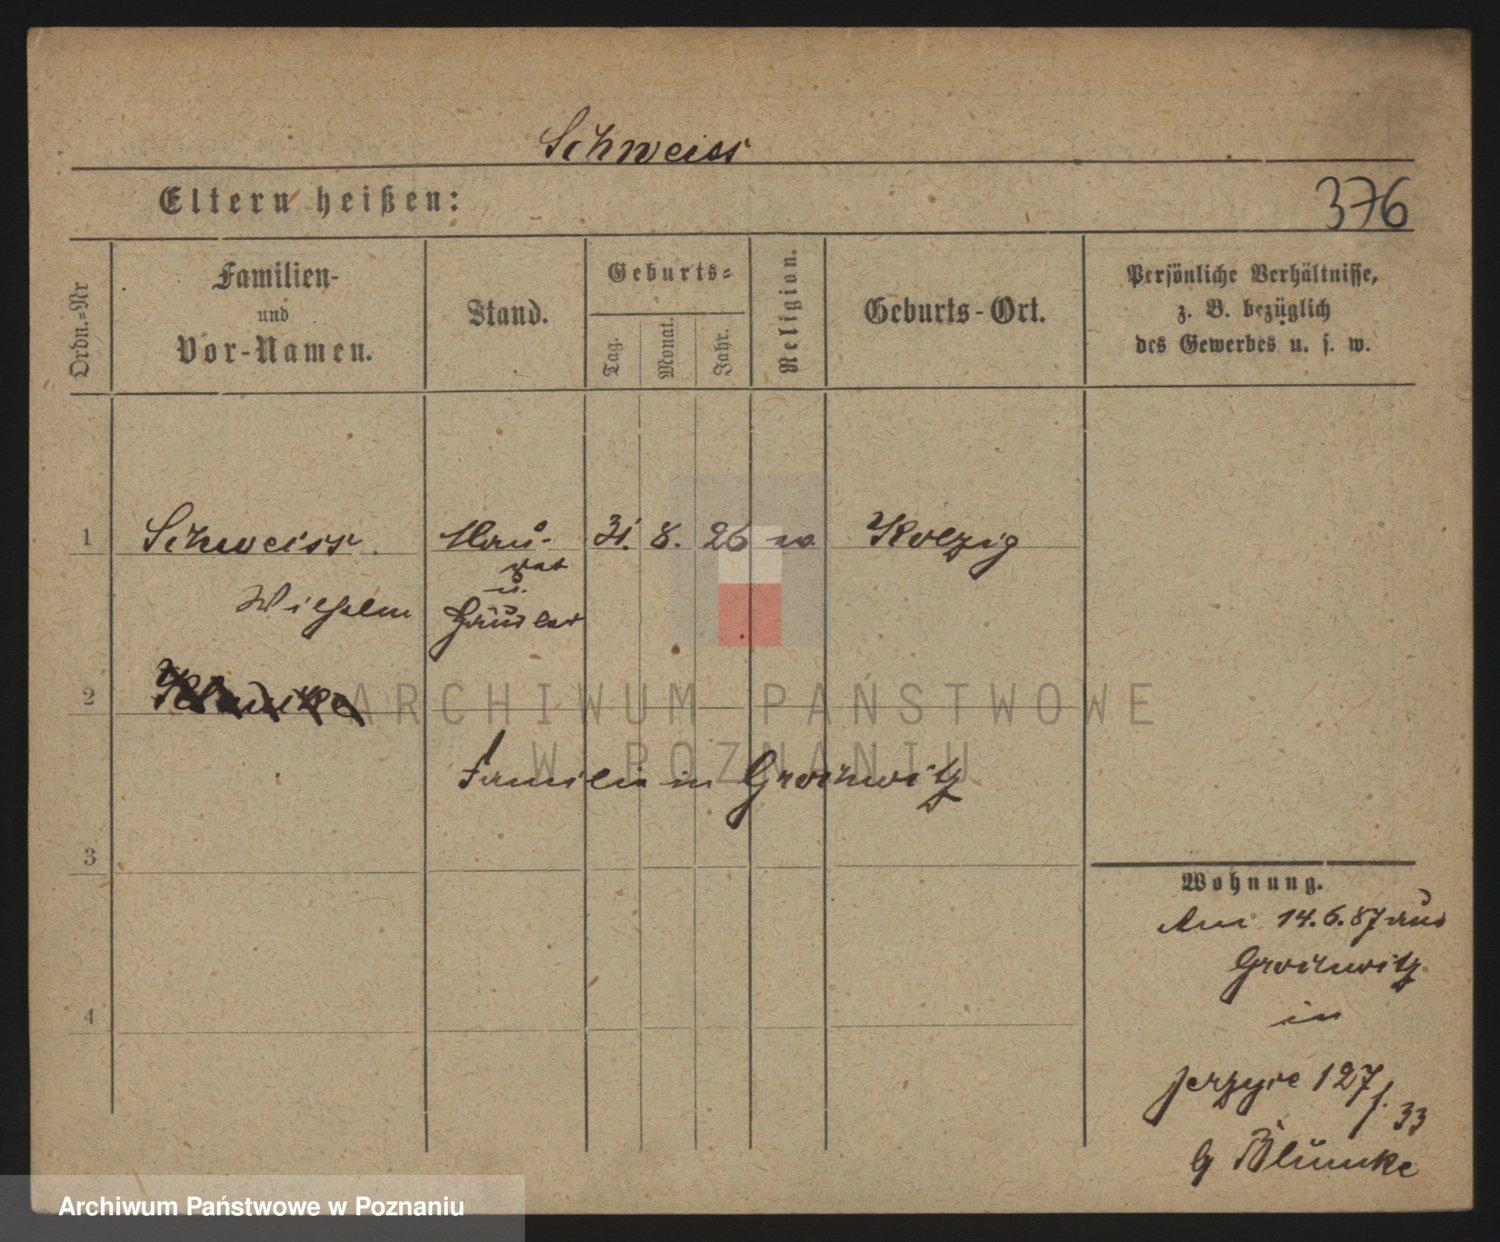 Schweiss
Eltern heißen:
376
Ordn.=Nr
Familien-
und
Vor-Namen.
Stand.
Geburts=
Tag.
Monat.
Jahr.
Religion.
Geburts-Ort.
Persönliche Verhältnisse,
z. B. bezüglich
des Gewerbes u. s. w.
1
Schweiss.
Mau-
31. 8. 26
Kolzig
rer
u.
Wilhelm
Häusler
2
ARCHIWUM PAŃSTWOWE
W POZNANIU
Familie in Grochwitz
3
Wohnung.
Am 14.6.87 aus
Grochwitz
in
4
Jerzyce 127
f. 33
b Blümke
Archiwum Państwowe w Poznaniu